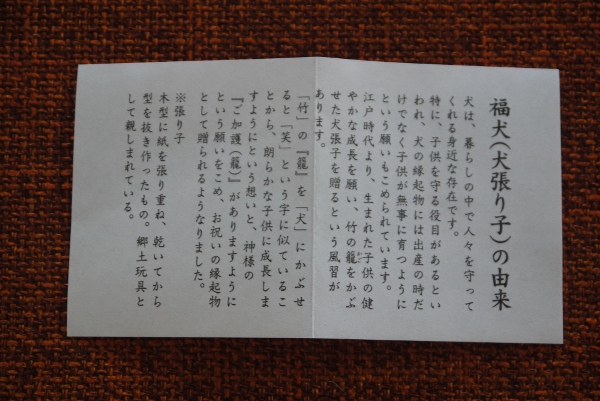 福犬(犬張り子)の由来
犬は、暮らしの中で人々を守って
くれる身近な存在です。
特に、子供を守る役目があるとい
われ、犬の縁起物には出産の時だ
けでなく子供が無事に育つように
という願いもこめられています。
江戸時代より、生まれた子供の健
やかな成長を願い、竹の籠をかぶ
せた犬張子を贈るという風習が
あります。
「竹」の『籠』を「犬」にかぶせ
ると「笑」という字に似ているこ
とから、朗らかな子供に成長しま
すようにという想いと、神様の
『ご加護(籠)』がありますように
という願いをこめ、お祝いの縁起物
として贈られるようなりました。
※張り子
木型に紙を張り重ね、乾いてから
型を抜き作ったもの。郷土玩具と
して親しまれている。